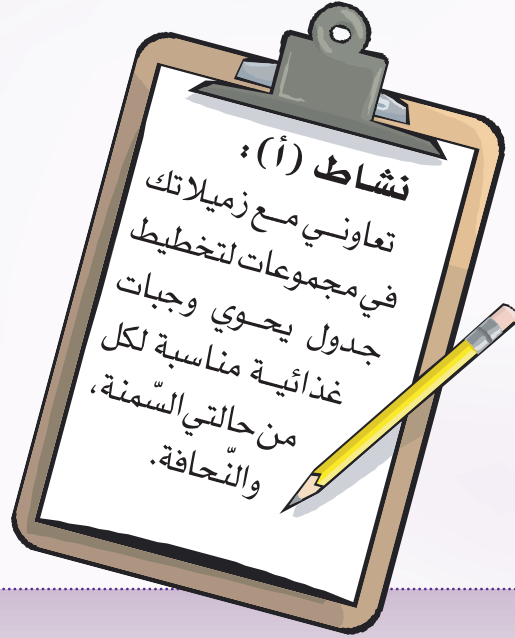 نشاط (أ) :
تعاونـي مـع زميلاتك
في مجموعات لتخطيط
جدول يحـوي وجبات
غذائيـة مناسبة لكل
من حالتي السّمنة،
والنّحافة.